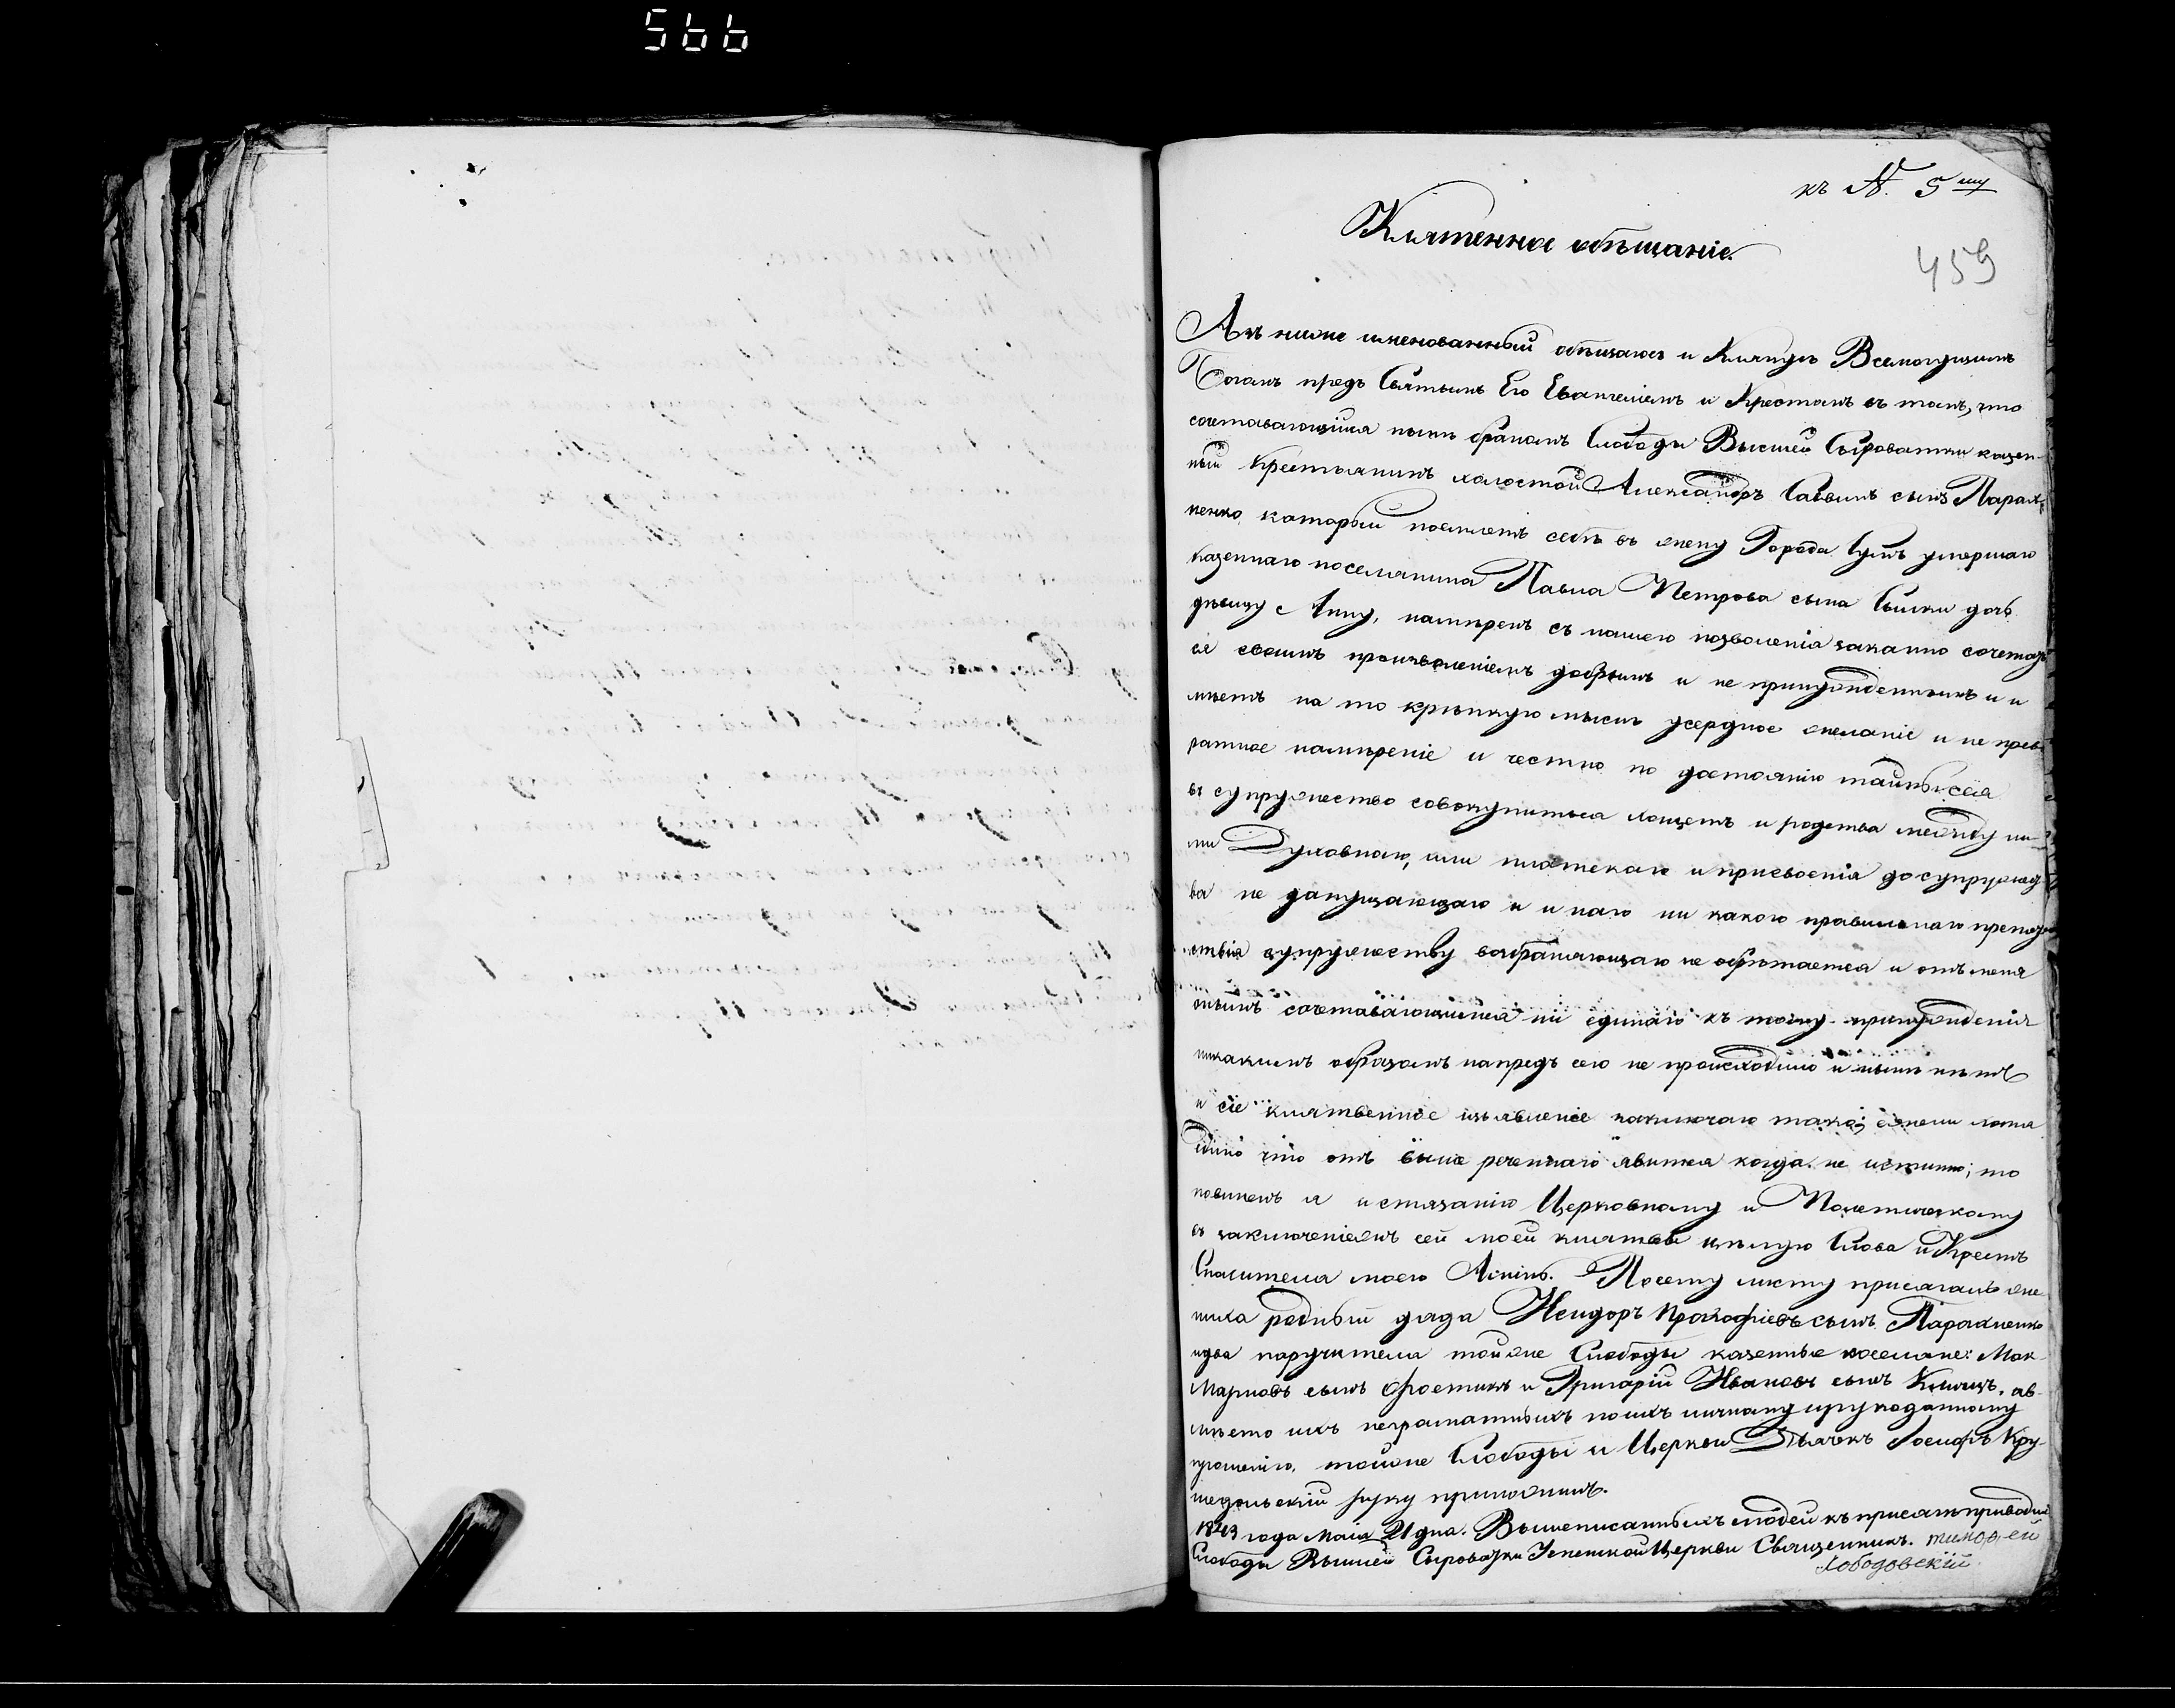 566
къ №. 5му
459
Клятенное обѣщаніе.
Азъ ниже именованный обѣщаюсь и Клянусь Всемогущимъ
Богомъ предъ Святымъ Его Евангеліемъ и Крестомъ въ томъ, что
сочетавающійся нынѣ бракомъ Слободы Высшей Сыроватки казен-
ный Крестьянинъ холостой Александръ Саввинъ сынъ Парах-
ненко который поемлетъ себѣ въ жену Города Сумъ умершаго
казеннаго поселянина Павла Петрова сына дочь
дѣвицу Анну, намѣренъ съ нашего позволенія законно сочетат
ся своимъ произволеніемъ добрымъ и не принужденнымъ и и
мѣетъ на то крѣпкую мысль усердное желаніе и не прев-
ратное намѣреніе и честно по достоянію тайны сея
въ супружество совокупитися хощетъ и родства между ни-
ми Духовнаго, или плотскаго и присвоенія до супружест
ва не допущающаго и инаго ни какого правильнаго препят
ствія супружеству возбраняющаго не обрѣтается и отъ меня
онымъ сочетавающимся ни единаго къ тому принужденія
никакимъ образомъ напредъ сего не происходило и нынѣ нѣтъ
и сіе клятвенное изъявленіе заключаю тако; ежели хотя
едино что отъ выше реченнаго явится когда не истинно; то
повиненъ я истязанію Церковному и Политическому
въ заключеніемъ сей моей клятвы цѣлую Слова и Крестъ
Спасителя моего Аминь. Посему листу присягалъ же
ниха родный дядя Исидоръ Прокофіевъ сынъ Парахненко
идва поручителя тойже Слободы казенные поселяне:
Марковъ сынъ и Григорій Ивановъ сынъ
вмѣсто ихъ неграматныхъ поихъ личному ирукоданному
прошенію, тойже Слободы и Церкви Дьячекъ Іосифъ Кру-
шедольскій руку приложилъ.
1843 года Маія 21 дня. Вышеписанныхъ людей къ присягѣ приводилъ
Слободы Вышней Сыроватки Успенской Церкви Священникъ. тимофей
Лободовскій